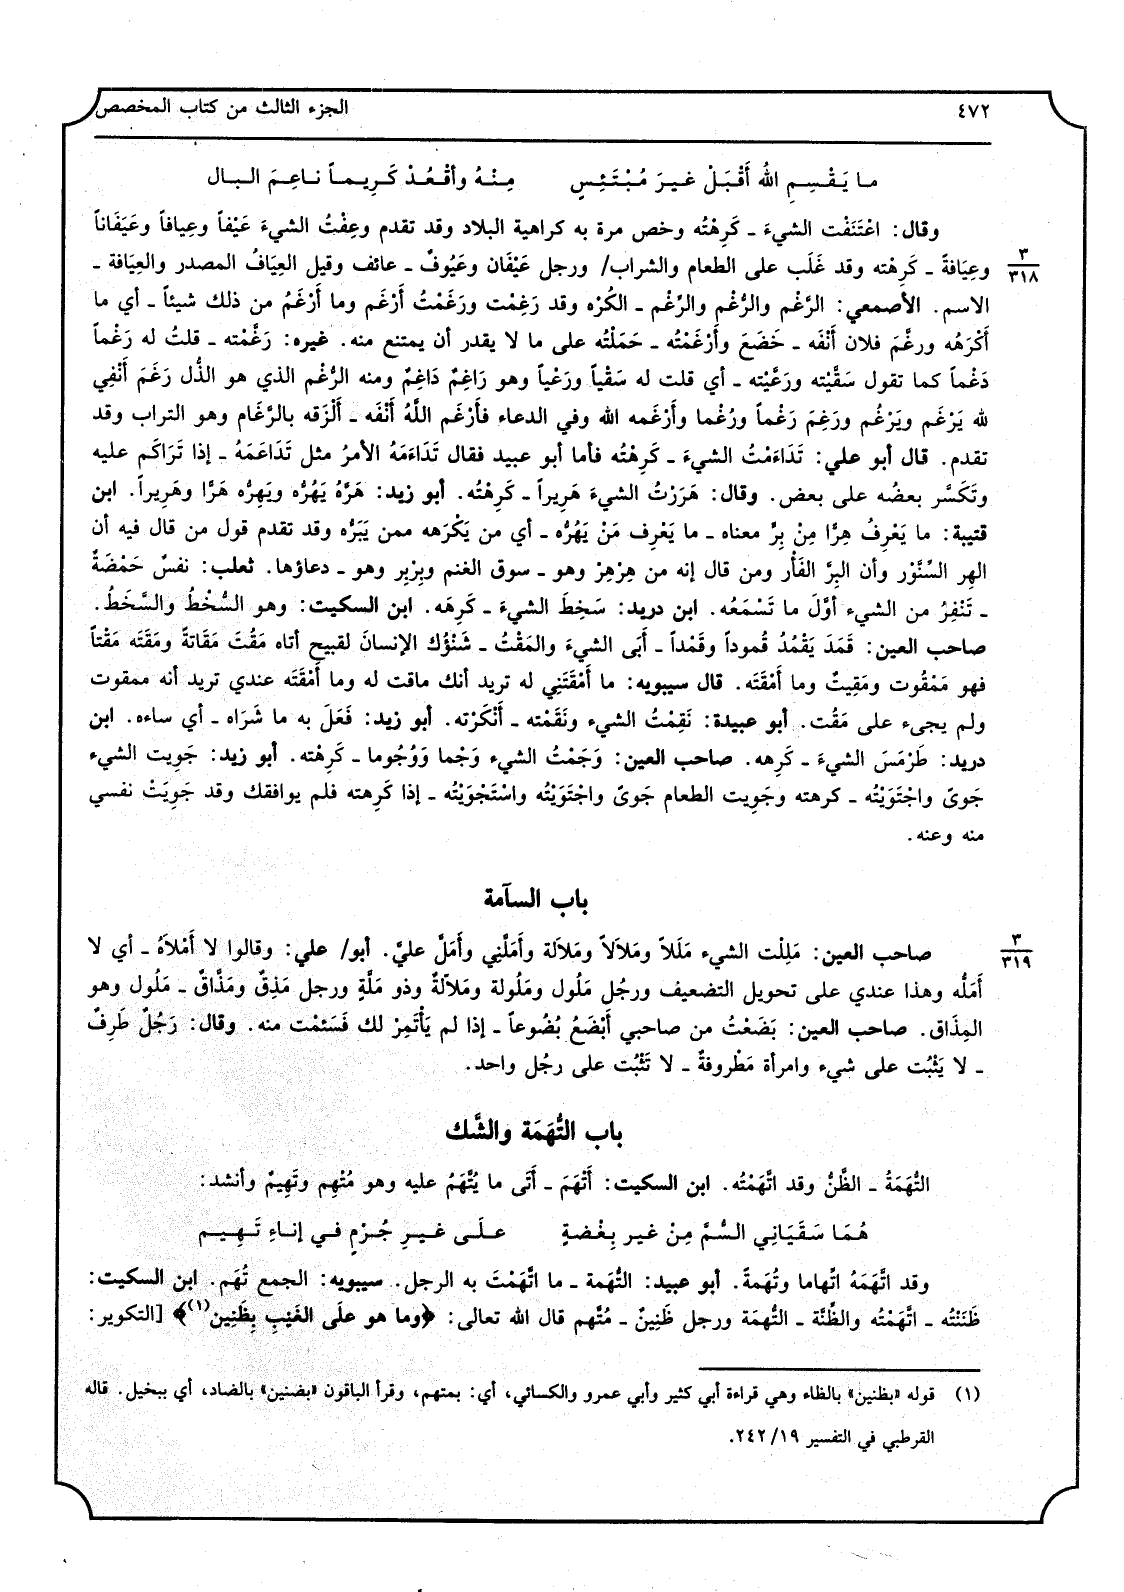 ٤٧٢ الجزء الثالث من كتاب المخصص
ما يَقْسِمِ اللهُ أَقْبَلْ غيرَ مُبْتَئِسٍ مِنْهُ وأَقْعُدْ كَرِيماً ناعِمَ البال
وقال: اعْتَنَفْت الشيءَ ـ كَرِهْتُه وخص مرة به كراهية البلاد وقد تقدم وعِفْتُ الشيءَ عَيْفاً وعِيافاً وعَيَفَاناً
٣
٣١٨
وعِيَافةً ـ كَرِهْته وقد غَلَب على الطعام والشراب/ ورجل عَيْفَان وعَيُوفٌ ـ عائف وقيل العِيَافُ المصدر والعِيَافة ـ
الاسم. الأصمعي: الرَّغْم والرُّغْم والرِّغْم ـ الكُرْه وقد رَغِمْت ورَغَمْتُ أَرْغَم وما أَرْغَمُ من ذلك شيئاً ـ أي ما
أَكْرَهُه ورغَّمَ فلان أَنْفَه ـ خَضَعَ وأَرْغَمْتُه ـ حَمَلْتُه على ما لا يقدر أن يمتنع منه. غيره: رَغَّمْته ـ قلتُ له رَغْماً
دَغْماً كما تقول سَقَّيْته ورَعَّيْته ـ أي قلت له سَقْياً ورَعْياً وهو رَاغِمٌ دَاغِمٌ ومنه الرُّغْم الذي هو الذُّل رَغَمَ أَنْفِي
لله يَرْغَم ويَرْغُم ورَغِمَ رَغْماً ورُغْما وأَرْغمه الله وفي الدعاء فأَرْغَم اللَّهُ أَنْفَه ـ أَلْزَقه بالرَّغَام وهو التراب وقد
تقدم. قال أبو علي: تَدَاءَمْتُ الشيءَ ـ كَرِهْتُه فأما أبو عبيد فقال تَدَاءَمَهُ الأمرُ مثل تَدَاعَمَهُ ـ إذا تَرَاكَم عليه
وتَكَسَّر بعضُه على بعض. وقال: هَرَرْتُ الشيءَ هَرِيراً ـ كَرِهْتُه. أبو زيد: هَرَّهُ يَهُرُّه ويَهِرُّه هَرًّا وهَرِيراً. ابن
قتيبة: ما يَعْرِفُ هِرًّا مِنْ بِرٍّ معناه ـ ما يَعْرِف مَنْ يَهُرُّه ـ أي من يَكْرَهه ممن يَبَرُّه وقد تقدم قول من قال فيه أن
الهِر السِّنَّوْر وأن البِرَّ الفَأْر ومن قال إنه من هِرْهِرْ وهو ـ سوق الغنم وبِرْبِر وهو ـ دعاؤها. ثعلب: نفسٌ حَمْضَةٌ
ـ تَنْفِرُ من الشيء أوَّلَ ما تَسْمَعُه. ابن دريد: سَخِطَ الشيءَ ـ كَرِهَه. ابن السكيت: وهو السُّخْطُ والسَّخَطُ.
صاحب العين: قَمَدَ يَقْمُدُ قُموداً وقَمْداً ـ أَبَى الشيءَ والمَقْتُ ـ شَنْؤُك الإنسانَ لقبيح أتاه مَقُتَ مَقَاتةً ومَقَتَه مَقْتاً
فهو مَمْقُوت ومَقِيتٌ وما أَمْقَتَه. قال سيبويه: ما أَمْقَتَنِي له تريد أنك ماقت له وما أَمْقَتَه عندي تريد أنه ممقوت
ولم يجىء على مَقُت. أبو عبيدة: نَقِمْتُ الشيء ونَقَمْته ـ أَنْكَرْته. أبو زيد: فَعَلَ به ما شَرَاه ـ أي ساءه. ابن
دريد: طَرْمَسَ الشيءَ ـ كَرِهه. صاحب العين: وَجَمْتُ الشيءَ وَجْما وَوُجُوما ـ كَرِهْته. أبو زيد: جَوِيت الشيءَ
جَوىً واجْتَوَيْتُه ـ كرهته وجَوِيت الطعام جَوىً واجْتَوَيْتُه واسْتَجْوَيْتُه ـ إذا كَرِهته فلم يوافقك وقد جَوِيَتْ نفسي
منه وعنه.
باب السآمة
٣
٣١٩
صاحب العين: مَلِلْت الشيء مَلَلاً ومَلاَلاً ومَلاَلة وأَمَلَّنِي وأَمَلَّ عليَّ. أبو/ علي: وقالوا لا أَمْلاَهُ ـ أي لا
أَمَلُّه وهذا عندي على تحويل التضعيف ورجُل مَلُول ومَلُولة ومَلاَلةٌ وذو مَلَّةٍ ورجل مَذِقٌ ومَذَّاقٌ ـ مَلُول وهو
المِذَاق. صاحب العين: بَضَعْتُ من صاحبي أَبْضَعُ بُضُوعاً ـ إذا لم يَأْتَمِرْ لك فَسَئمْت منه. وقال: رَجُلٌ طَرِفٌ
ـ لا يَثْبُت على شيء وامرأة مَطْروفةٌ ـ لا تَثْبُت على رجُل واحد.
باب التُّهَمَة والشَّك
التُّهَمَةُ ـ الظَّنُّ وقد اتَّهَمْتُه. ابن السكيت: أَتْهَمَ ـ أَتَى ما يُتَّهَمُ عليه وهو مُتْهِم وتَهِيمٌ وأنشد:
هُمَا سَقَيَانِي السُّمَّ مِنْ غير بِغْضةٍ علَى غيرِ جُرْمٍ في إناءِ تَهِيم
وقد اتَّهَمَهُ اتِّهاما وتُهَمةً. أبو عبيد: التُّهَمة ـ ما اتَّهَمْتَ به الرجل. سيبويه: الجمع تُهَم. ابن السكيت:
ظَنَنْتُه ـ اتَّهَمْتُه والظِّنَّة ـ التُّهَمة ورجل ظَنِينٌ ـ مُتَّهم قال الله تعالى: ﴿وما هو علَى الغَيْبِ بِظَنِين(١)﴾ [التكوير:
(١) قوله «بظنين» بالظاء وهي قراءة أبي كثير وأبي عمرو والكسائي، أي: بمتهم، وقرأ الباقون «بضنين» بالضاد، أي ببخيل. قاله
القرطبي في التفسير ١٩/ ٢٤٢.